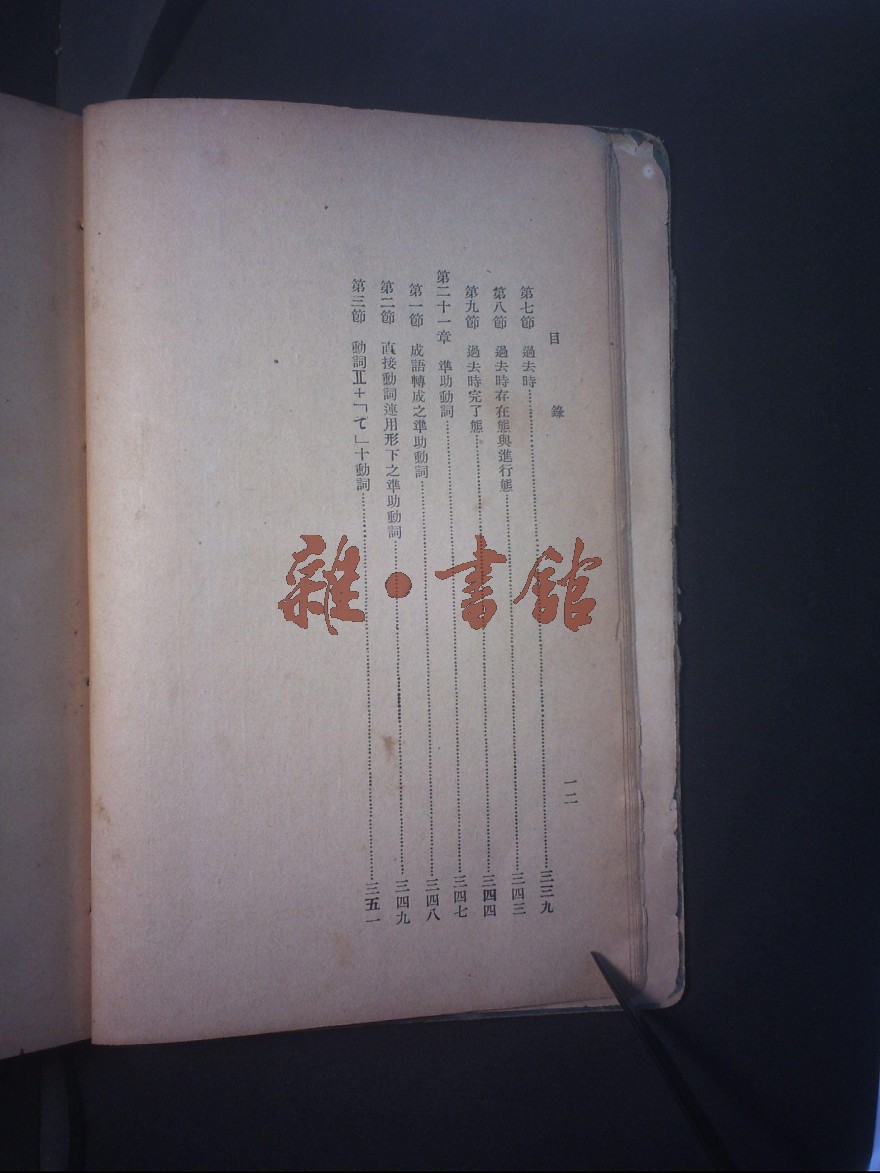 目錄
一二
第七節 過去時……三三九
第八節 過去時存在態與進行態……三四三
第九節 過去時完了態……三四四
第二十一章 準助動詞……三四七
第一節 成語轉成之準助動詞……三四八
第二節 直接動詞連用形下之準助動詞……三四九
第三節 動詞Ⅱ+「て」十動詞……三五一
雜·書館